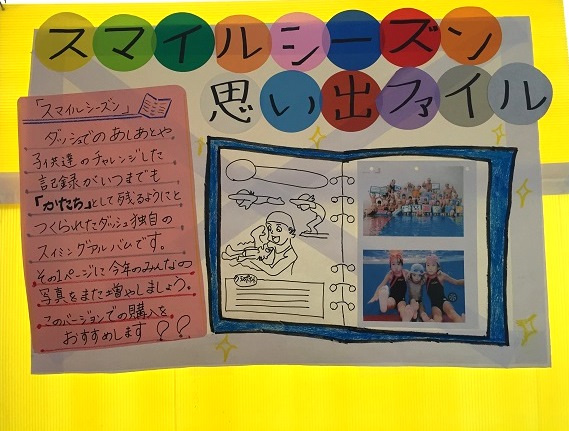 スマイルシーズン
思い出ファイル
「スマイルシーズン」
ダッシュでのあしあとや
子供達のチャレンジした
記録がいつまでも
「かたち」として残るようにと
つくられたダッシュ独自の
スイミングアルバムです。
その1ページに今年のみんなの
写真をまた増やしましょう。
このバージョンでの購入を
おすすめします??